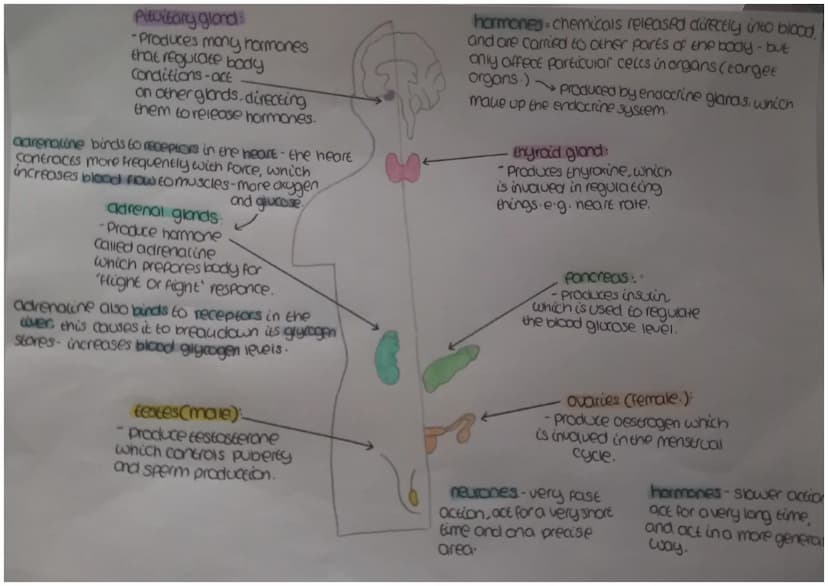 Pituitary gland:
- Produces many hormones
that regulate body
conditions - act
on other glands, directing
them to release hormones.
hormones - chemicals released directly into blood,
and are carried to other parts of the body - but
only affect particular cells in organs (target
organs.) → produced by endocrine glands, which
make up the endocrine system.
adrenaline binds to receptors in the heart - the heart
contracts more frequently with force, which
increases blood flow to muscles - more oxygen
and glucose.
thyroid gland:
- Produces thyroxine, which
is involved in regulating
things e.g. heart rate.
adrenal glands:
- Produce hormone
called adrenaline
which prepares body for
'flight or fight' responce.
pancreas:
- produces insulin
which is used to regulate
the blood glucose level.
adrenaline also binds to receptors in the
liver, this causes it to breakdown its glycogen
stores - increases blood glycogen levels.
testes (male):
- Produce testosterone
which controls puberty
and sperm production.
ovaries (female):
- produce oestrogen which
is involved in the menstrual
cycle.
neurones - very fast
action, act for a very short
time and on a precise
area.
hormones - slower action
act for a very long time,
and act in a more general
way.